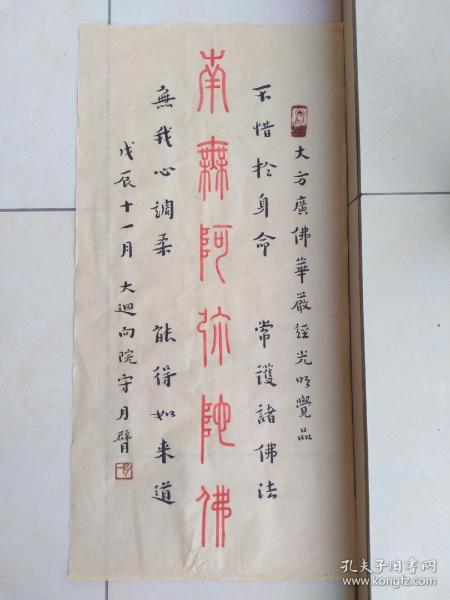 大方廣佛華嚴經光明覺品
不惜於身命 常護諸佛法
南無阿弥陀佛
無我心調柔 能得如来道
戊辰十一月 大迴向院宇月臂
孔夫子旧书网
www.kongfz.com